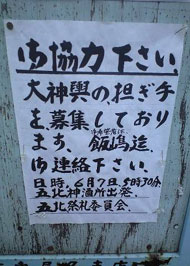 御協力下さい、
大神輿の、担ぎ手
を募集しており
ます、飯嶋迄、
御連絡下さい、
日時、6月7日、5時30分
五北神酒所出発、
五北祭礼委員会、